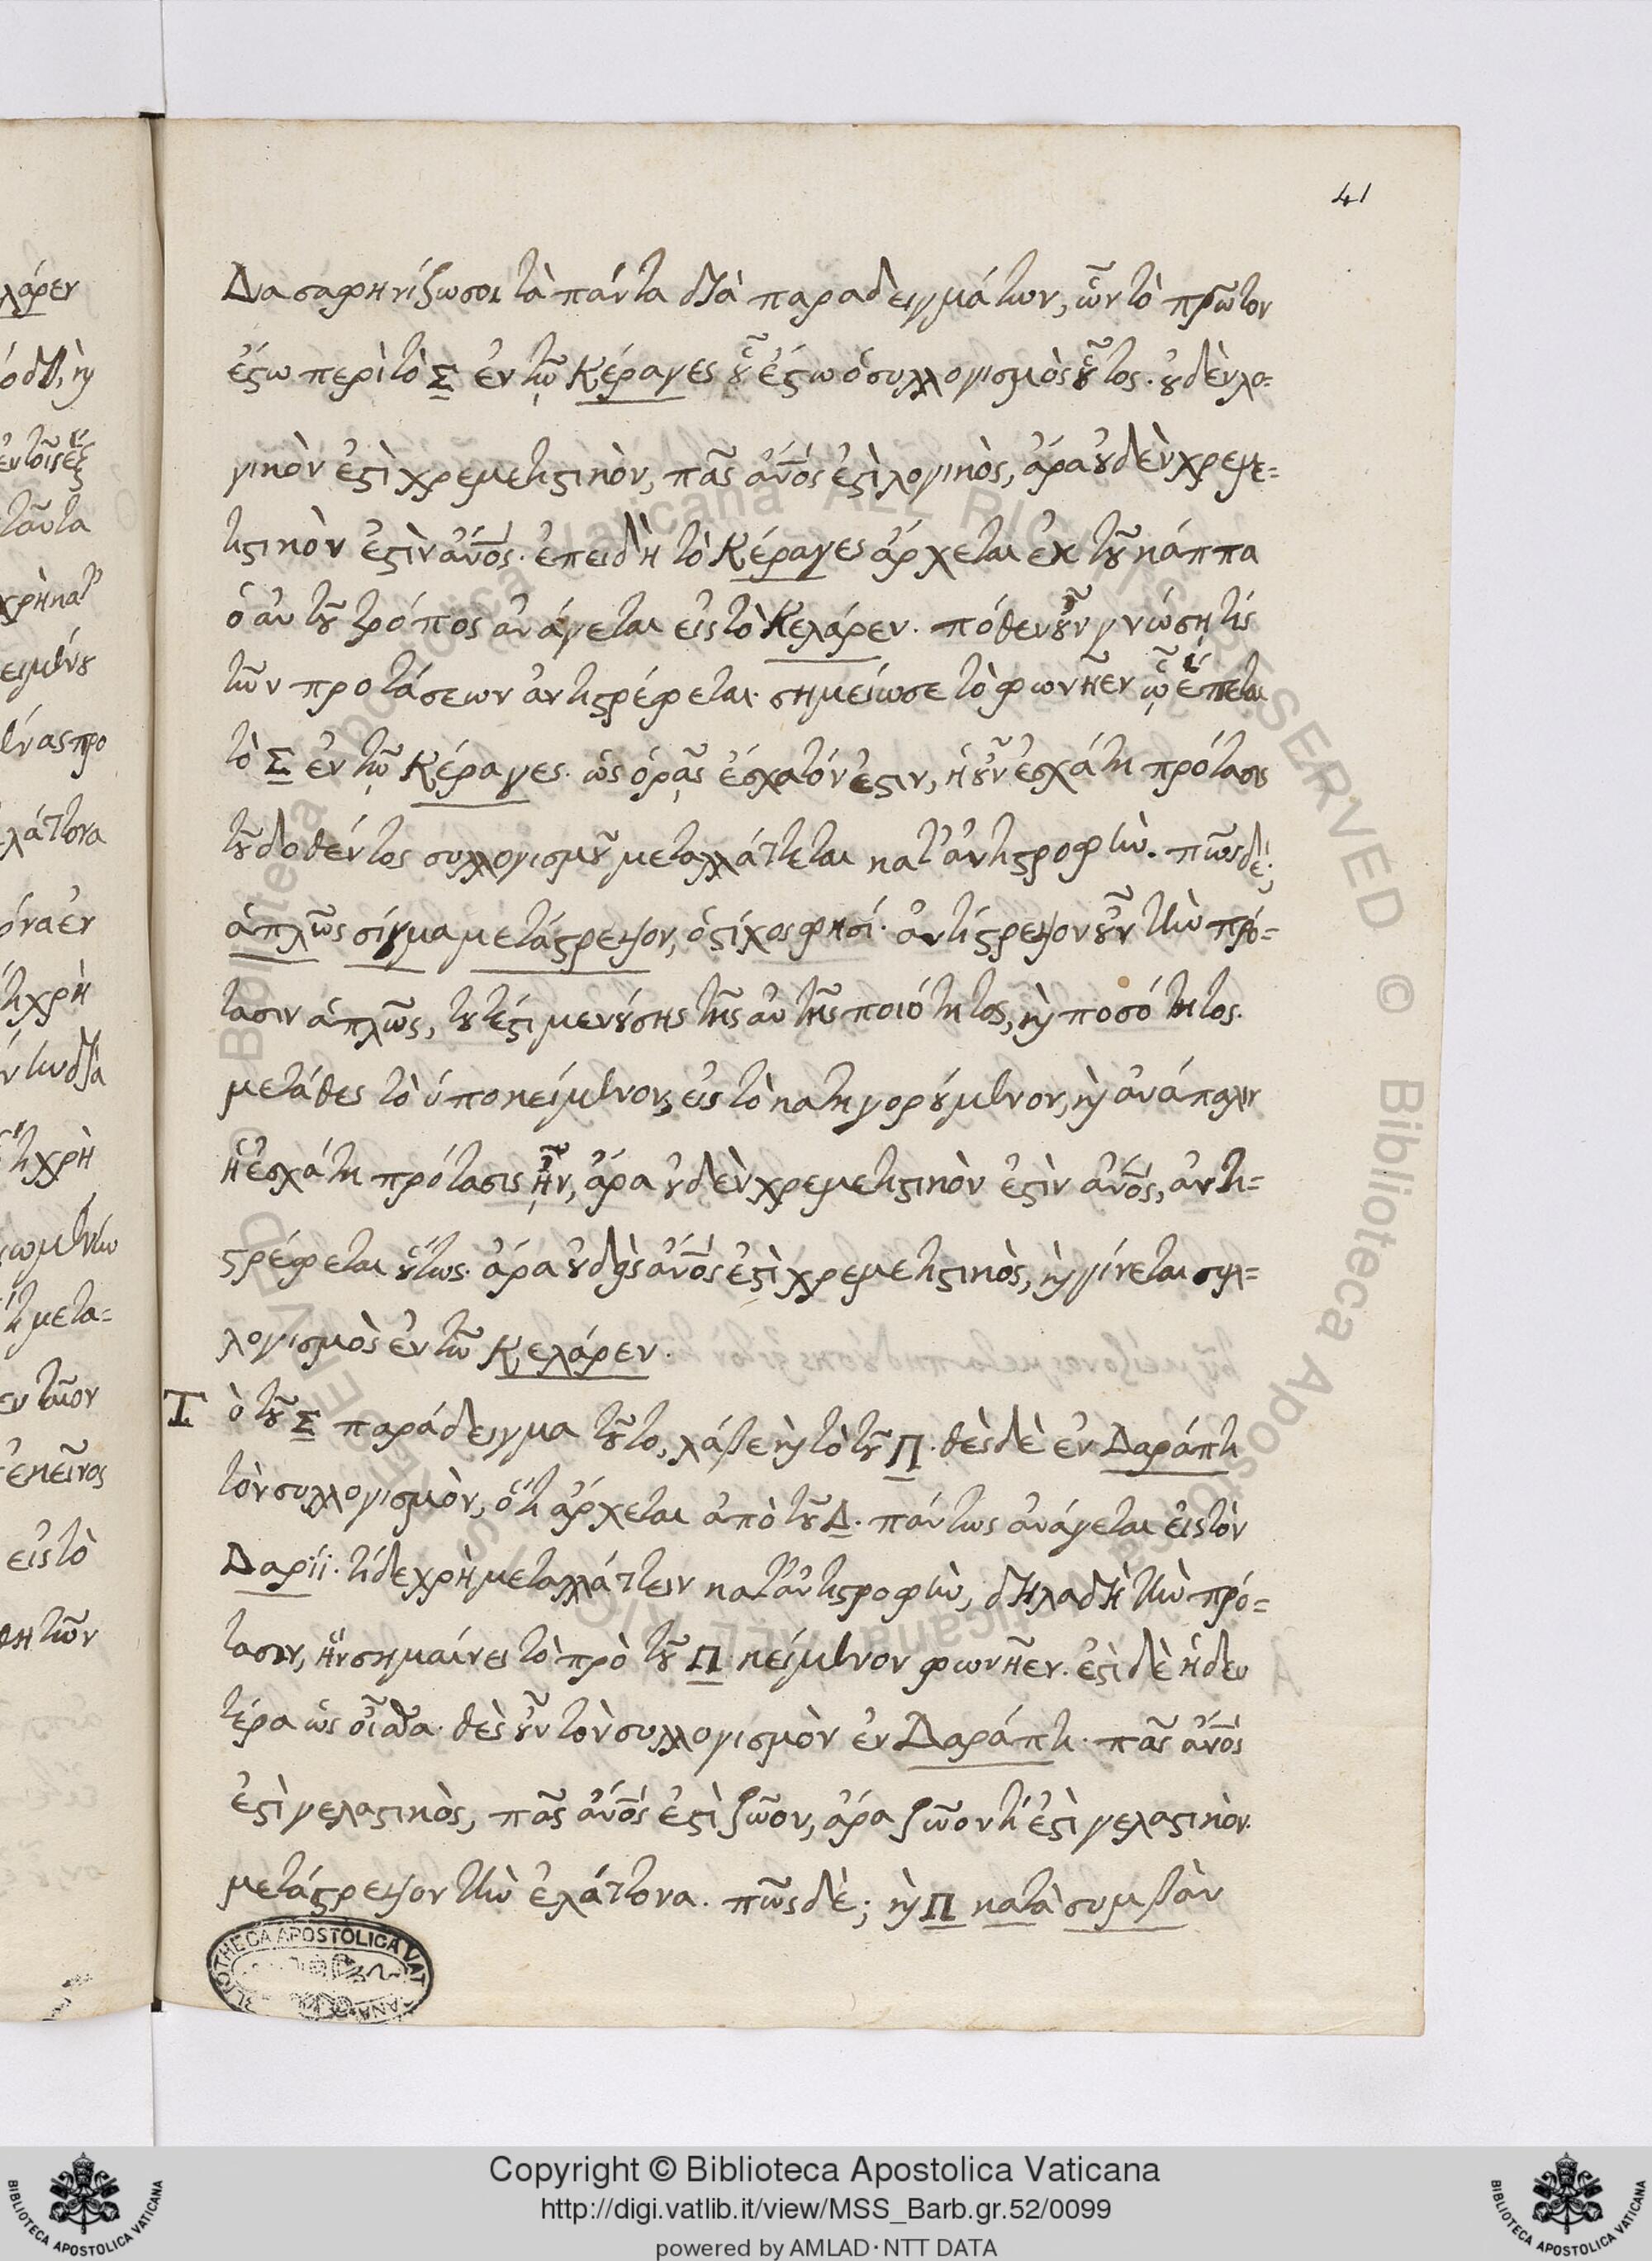 41
Διασαφηνίζωσοι τὰ πάντα διὰ παραδειγμάτων, ὧν τὸ πρῶτον
ἔςω περὶ τὸ Σ ἐν τῷ Κέραγες ȣ̃ ἔςω ὁ συλλογισμὸς ȣ̃τος. ȣ̓δὲν λο=
γικὸν ἐςὶ χρεμετιςικὸν, πᾶς ἄν̅ος ἐςὶ λογικὸς, ἄρα ȣ̓δὲν χρεμε=
τιςικὸν ἐςὶν ἄν̅ος. ἐπειδὴ τὸ Κέραγες ἄρχεται ἐκ τȣ̃ κάππα
ὁ αὐτȣ̃ τρόπος ἀνάγεται εἰς τὸ Κελάρεν. πόθεν ȣ̓͂ν γνώσῃ τίς
τῶν προτάσεων ἀντιςρέφεται. σημείωσε τὸ φωνῆεν ᾧ ἕπεται
τὸ Σ ἐν τῷ Κέραγες. ὡς ὁρᾷς ἔσχατόν ἐςιν, ἡ ȣ̓͂ν ἐσχάτη πρότασις
τȣ̃ δοθέντος συλλογισμȣ̃ μεταλλάττεται κατ' ἀντιςροφὴν. πῶς δέ;
ἁπλῶς σίγμα μετάςρεψον, ὁ ςίχος φησί. ἀντίςρεψον ȣ̓͂ν τὴν πρό=
τασιν ἁπλῶς, τȣτέςι μενȣ́σης τῆς αὐτῆς ποιότητος, καὶ ποσότητος.
μετάθες τὸ ὑποκείμενον, εἰς τὸ κατηγορȣ́μενον, καὶ ἀνάπαλιν
ἡ ἐσχάτη πρότασις ἦν, ἄρα ȣ̓δὲν χρεμετιςικὸν ἐςὶν ἄν̅ος, ἀντι=
ςρέφεται ȣ̔́τως. ἄρα ȣ̓δεὶς ἄν̅ος ἐςὶ χρεμετιςικὸς, καὶ γίνεται συλ=
λογισμὸς ἐν τῷ Κελάρεν.
Τ ὸ τȣ̃ Σ παράδειγμα τȣ̃το, λάβε καὶ τὸ τȣ̃ Π. θὲς δὲ ἐν Δαράπτι
τὸν συλλογισμὸν, ὅτι ἄρχεται ἀπὸ τȣ̃ Δ. πάντως ἀνάγεται εἰς τὸν
Δαρίι. τί δε χρὴ μεταλλάττειν κατ' ἀντιςροφὴν, δηλαδὴ τὴν πρό=
τασιν, ἣν σημαίνει τὸ πρὸ τȣ̃ Π κείμενον φωνῆεν. ἐςὶ δὲ ἡ δευ
τέρα ὡς οἶσθα. θὲς ȣ̓͂ν τὸν συλλογισμὸν ἐν Δαράπτι. πᾶς ἄν̅ος
ἐςὶ γελαςικὸς, πᾶς ἄν̅ος ἐςὶ ζῶον, ἄρα ζῶον τί ἐςὶ γελαςικὸν.
μετάςρεψον τὴν ἐλάττονα. πῶς δὲ; καὶ Π κατὰ συμβὰν
Copyright © Biblioteca Apostolica Vaticana
http://digi.vatlib.it/view/MSS_Barb.gr.52/0099
powered by AMLAD·NTT DATA